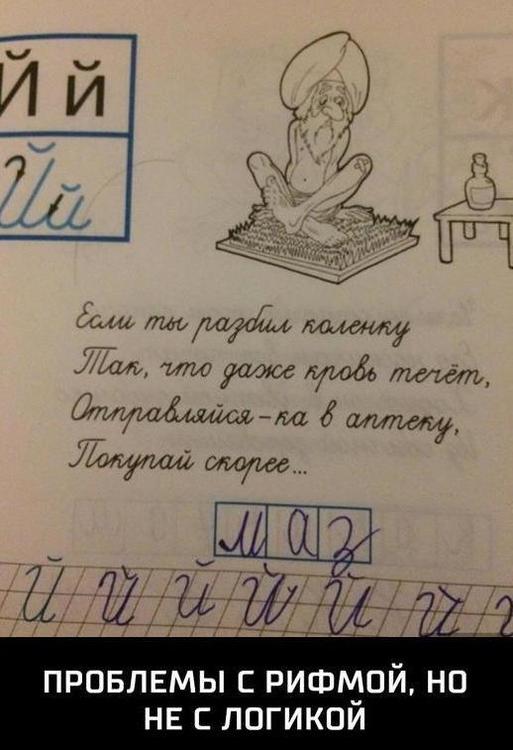 Й й
Й й
Если ты разбил коленку
Так, что даже кровь течёт,
Отправляйся-ка в аптеку,
Покупай скорее...
маз
Й Й Й Й Й Й
ПРОБЛЕМЫ С РИФМОЙ, НО
НЕ С ЛОГИКОЙ